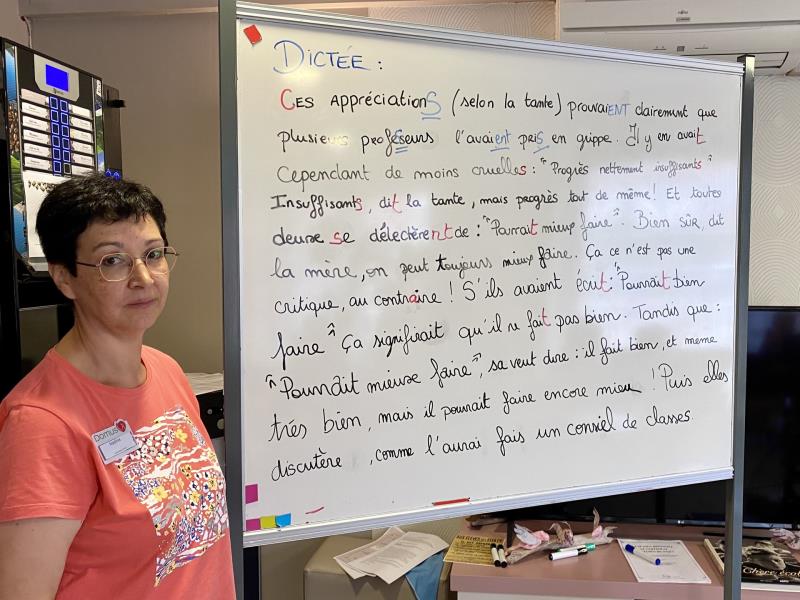 DICTÉE :
CES APPRÉCIATIONS (selon la tante) prouvaiENT clairement que
plusieurs profeSseurs l'avaient priS en grippe. Il y en avait
Cependant de moins cruelles : "Progrès nettement insuffisants"
Insuffisants, dit la tante, mais progrès tout de même ! Et toutes
deuxe se délectèrent de : "Pourrait mieux faire". Bien sûr, dit
la mère, on peut toujours mieux faire. Ça ce n'est pas une
critique, au contraire ! S'ils avaient écrit : "Pourrait bien
faire" Ça signifirait qu'il ne fait pas bien. Tandis que :
"Pourrait mieuxe faire", sa veut dire : il fait bien, et meme
trés bien, mais il pourrait faire encore mieu ! Puis elles
discutère, comme l'aurai fais un consiel de classes
FUJITSU
DOMUS